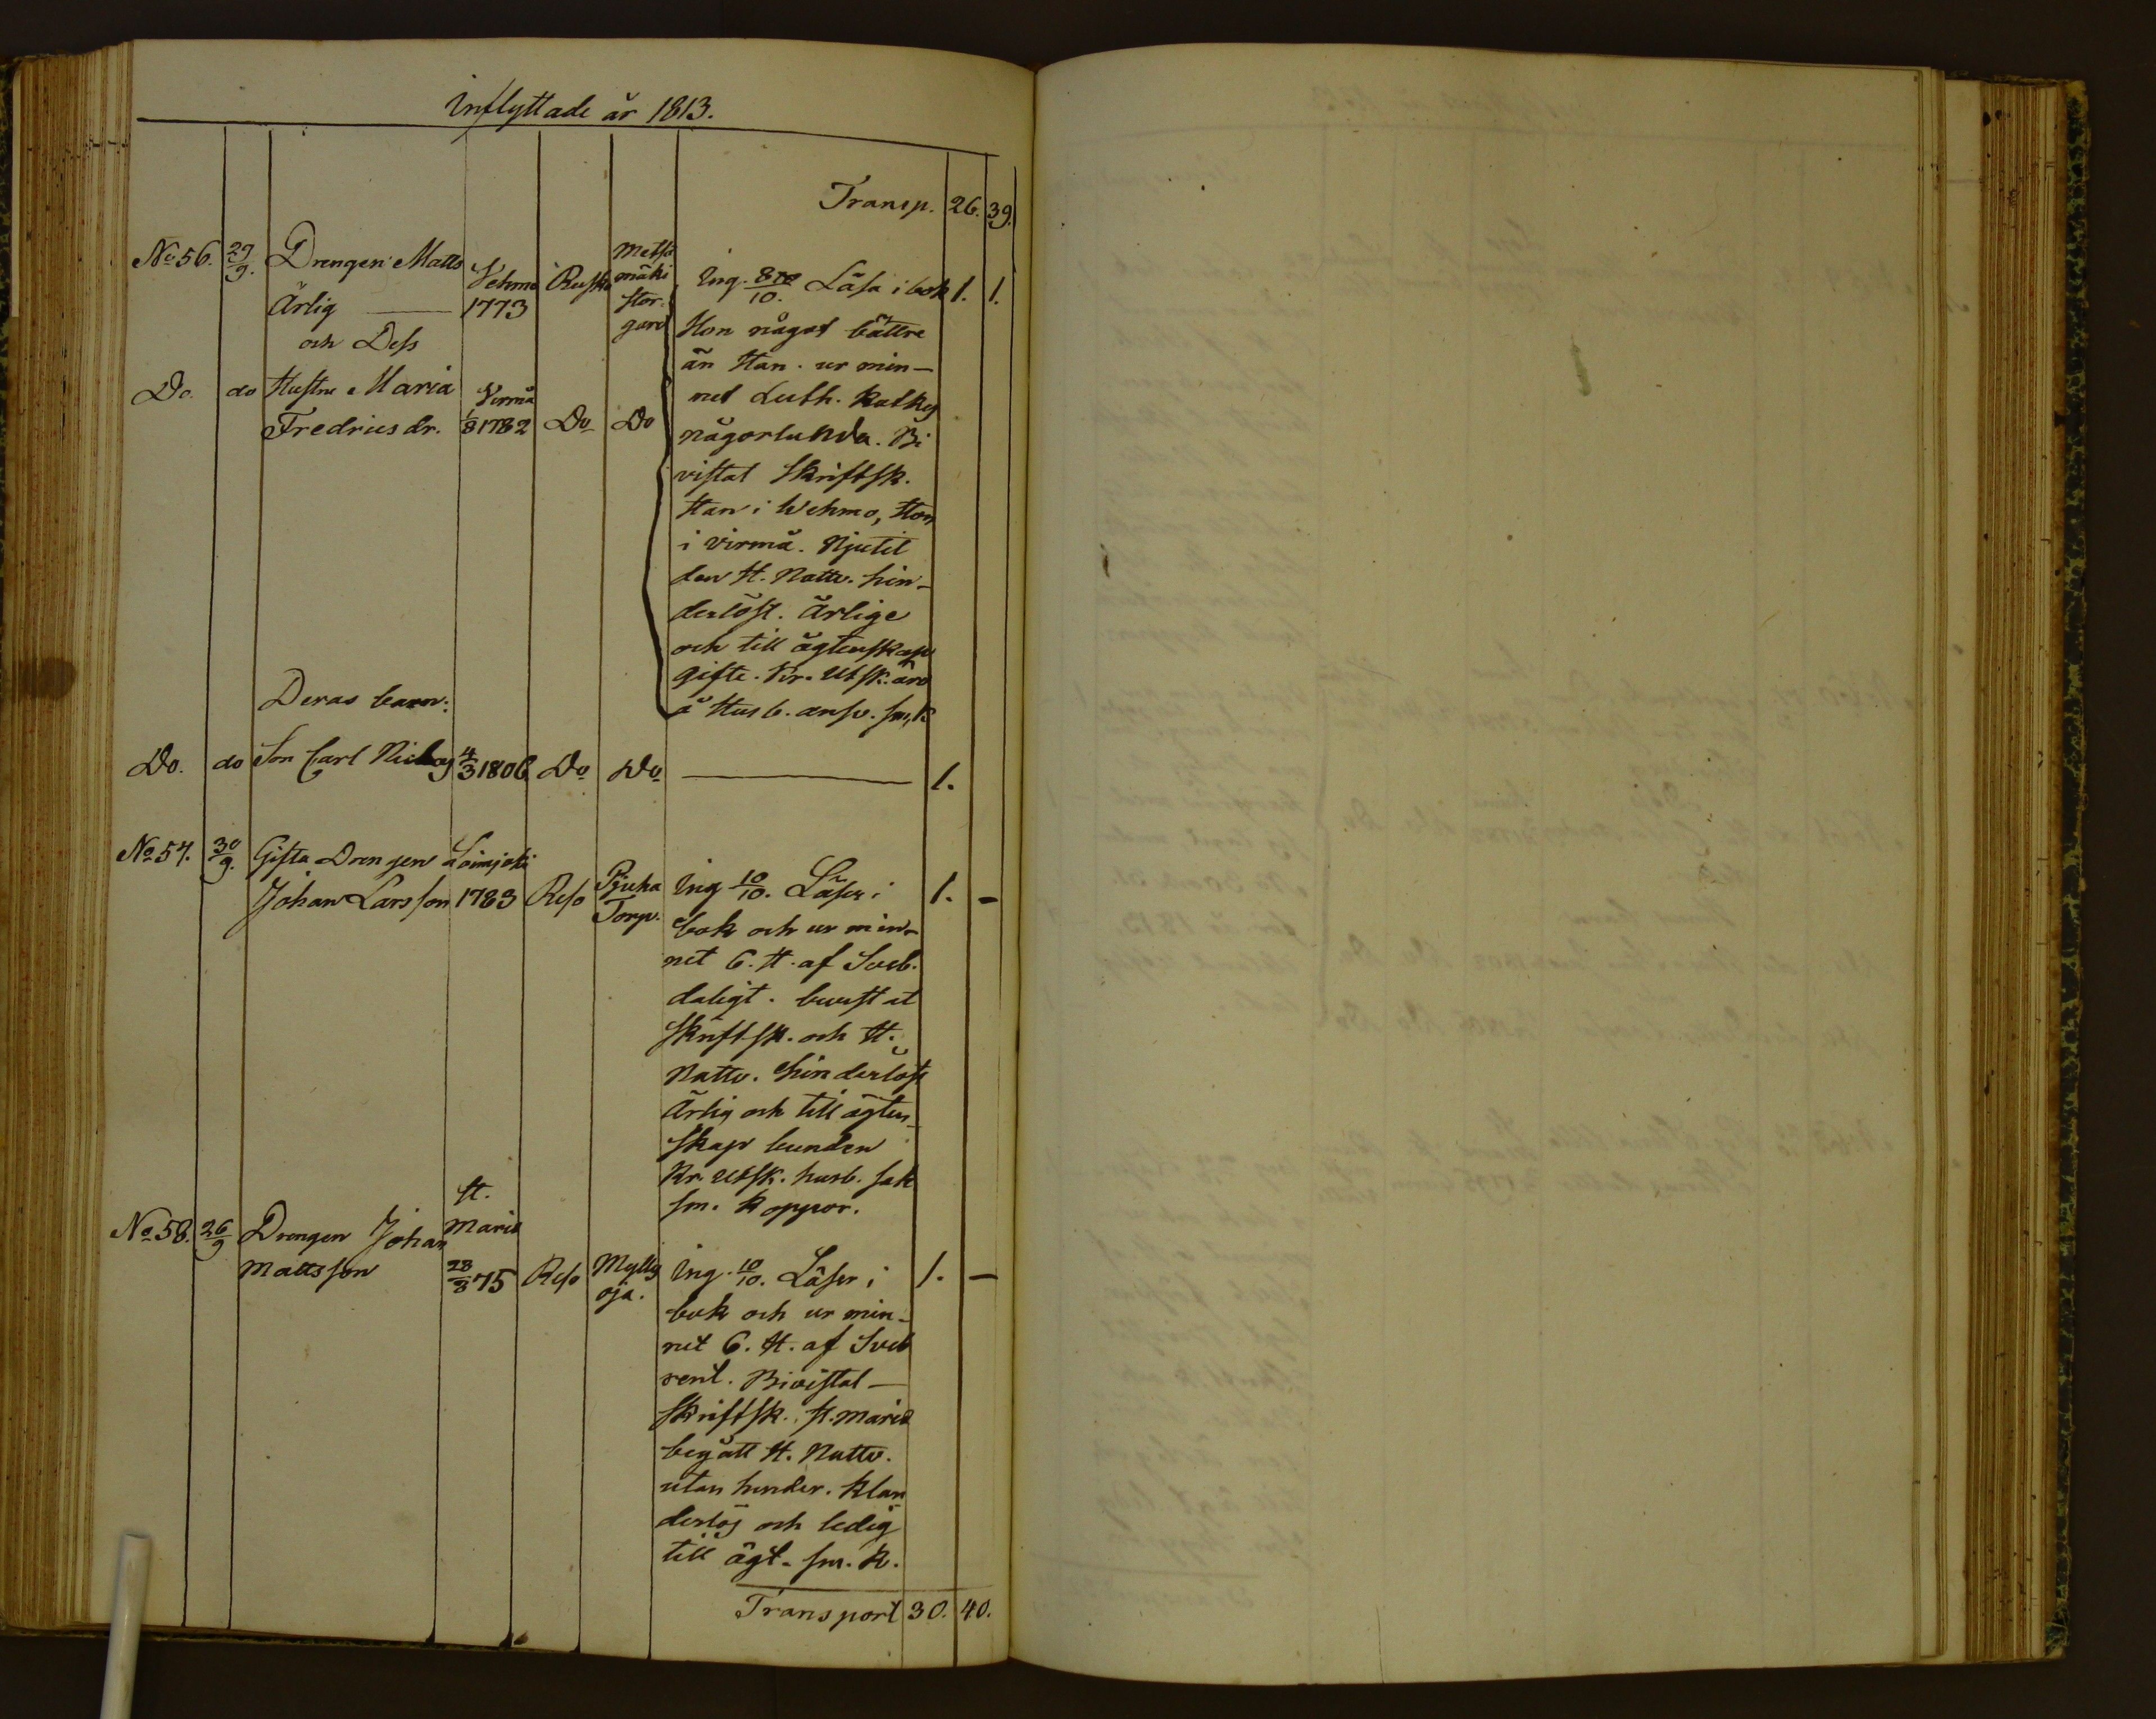 Inflyttade år 1813.
Transp. 26. 39.
No 56. 27/9. Drengen Matts Ärlig Vehmo 1773 Rusko Metsämäki storgård
och Dess
Ing. 8/10. Läsa i bok 1. 1.
Hon något bättre
än Han. ur min-
net Luth. Katkes
någorlunda. Bi
vistat Skriftsk.
Han i Wehmo, Hon
i Virmå. Njutit
den H. Nattv. hin-
derlöst. Ärlige
och till ägtenskap
gifte. Kr. Utsk. äro
å Husb. ansv. sm, K
Do. do Hustru Maria Fredricsdr. Virmå 1/8 1782 Do Do
Deras barn:
Do. do Son Carl Niclas 4/3 1806 Do Do — 1.
No 57. 30/9. Gifta Drengen Johan Larsson Loimjoki 1783 Reso Pjuha Torp.
Ing 10/10. Läser i 1. -
bok och ur min-
net 6. H. af Sveb.
daligt. bevistat
Skriftsk. och H.
Nattv. hinderlöst
Ärlig och till ägten-
skap bunden
Kr. Utsk. husb. sak
sm. koppor.
No 58. 26/9 Drengen Johan Mattsson St. Mariæ 28/8 75 Reso Mylly oja.
Ing. 10/10. Läser i 1. —
bok och ur min-
net 6. H. af Sveb
rent. Bivistat —
Skriftsk. St. Mariæ
begått H. Nattv.
utan hinder. Klan
derlös och ledig
till ägt. sm. K.
Transport 30. 40.